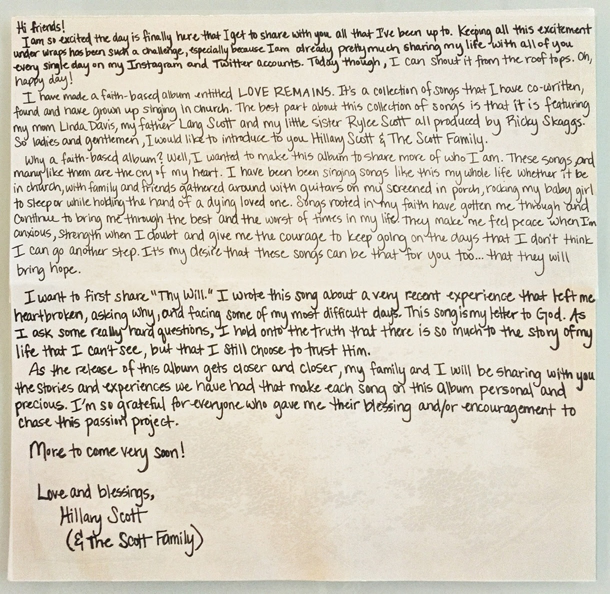 Hi friends!
I am so excited the day is finally here that I get to share with you all that I've been up to. Keeping all this excitement
under wraps has been such a challenge, especially because I am already pretty much sharing my life with all of you
every single day on my Instagram and Twitter accounts. Today though, I can shout it from the roof tops. Oh,
happy day!
I have made a faith-based album entitled LOVE REMAINS. It's a collection of songs that I have co-written,
found and have grown up singing in church. The best part about this collection of songs is that it is featuring
my mom Linda Davis, my father Lang Scott and my little sister Rylee Scott all produced by Ricky Skaggs.
So ladies and gentlemen, I would like to introduce to you Hillary Scott & The Scott Family.
Why a faith-based album? Well, I wanted to make this album to share more of who I am. These songs and
many like them are the cry of my heart. I have been been singing songs like this my whole life whether it be
in church, with family and friends gathered around with guitars on my screened in porch, rocking my baby girl
to sleep or while holding the hand of a dying loved one. Songs rooted in my faith have gotten me through and
continue to bring me through the best and the worst of times in my life. They make me feel peace when I'm
anxious, strength when I doubt and give me the courage to keep going on the days that I don't think
I can go another step. It's my desire that these songs can be that for you too... that they will
bring hope.
I want to first share "Thy Will." I wrote this song about a very recent experience that left me
heartbroken, asking why, and facing some of my most difficult days. This song is my letter to God. As
I ask some really hard questions, I hold onto the truth that there is so much to the story of my
life that I can't see, but that I still choose to trust Him.
As the release of this album gets closer and closer, my family and I will be sharing with you
the stories and experiences we have had that make each song on this album personal and
precious. I'm so grateful for everyone who gave me their blessing and/or encouragement to
chase this passion project.
More to come very soon!
Love and blessings,
Hillary Scott
(& The Scott Family)